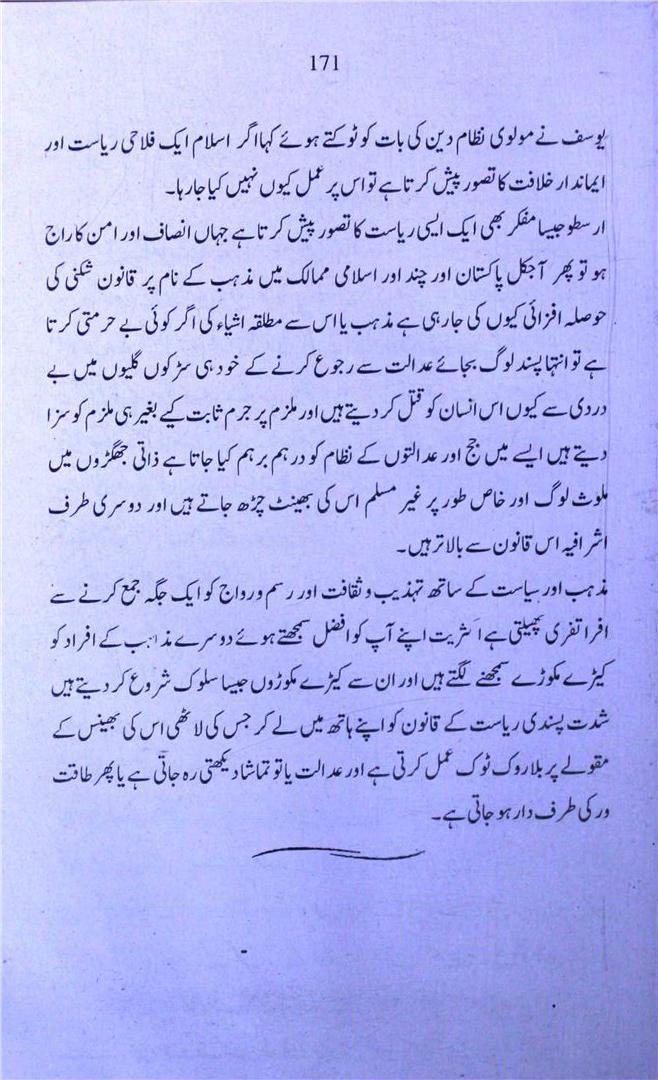 171
یوسف نے مولوی نظام دین کی بات کو ٹوکتے ہوئے کہا اگر اسلام ایک فلاحی ریاست اور
ایماندار خلافت کا تصور پیش کرتا ہے تو اس پر عمل کیوں نہیں کیا جا رہا۔
ارسطو جیسا مفکر بھی ایک ایسی ریاست کا تصور پیش کرتا ہے جہاں انصاف اور امن کا راج
ہو تو پھر آجکل پاکستان اور چند اور اسلامی ممالک میں مذہب کے نام پر قانون شکنی کی
حوصلہ افزائی کیوں کی جارہی ہے مذہب یا اس سے مطلقہ اشیاء کی اگر کوئی بے حرمتی کرتا
ہے تو انتہا پسند لوگ بجائے عدالت سے رجوع کرنے کے خود ہی سڑکوں گلیوں میں بے
دردی سے کیوں اس انسان کو قتل کر دیتے ہیں اور ملزم پر جرم ثابت کیے بغیر ہی ملزم کو سزا
دیتے ہیں ایسے میں جج اور عدالتوں کے نظام کو درہم برہم کیا جاتا ہے ذاتی جھگڑوں میں
ملوث لوگ اور خاص طور پر غیر مسلم اس کی بھینٹ چڑھ جاتے ہیں اور دوسری طرف
اشرافیہ اس قانون سے بالا تر ہیں۔
مذہب اور سیاست کے ساتھ تہذیب و ثقافت اور رسم و رواج کو ایک جگہ جمع کرنے سے
افراتفری پھیلتی ہے اکثریت اپنے آپ کو افضل سمجھتے ہوئے دوسرے مذاہب کے افراد کو
کیڑے مکوڑے سمجھنے لگتے ہیں اور ان سے کیڑے مکوڑوں جیسا سلوک شروع کر دیتے ہیں
شدت پسندی ریاست کے قانون کو اپنے ہاتھ میں لے کر جس کی لاٹھی اس کی بھینس کے
مقولے پر بلا روک ٹوک عمل کرتی ہے اور عدالت یا تو تماشا دیکھتی رہ جاتی ہے یا پھر طاقت
ور کی طرف دار ہو جاتی ہے۔